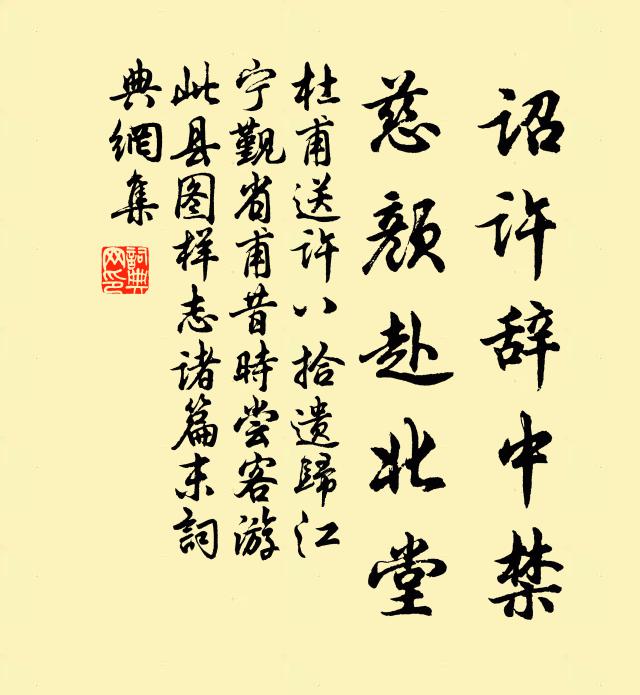 诏许辞中禁
慈颜赴北堂
杜甫送许八拾遗歸江
宁觐省甫昔時尝客游
此县图样志诸篇末詞
典網集
詞典
网印